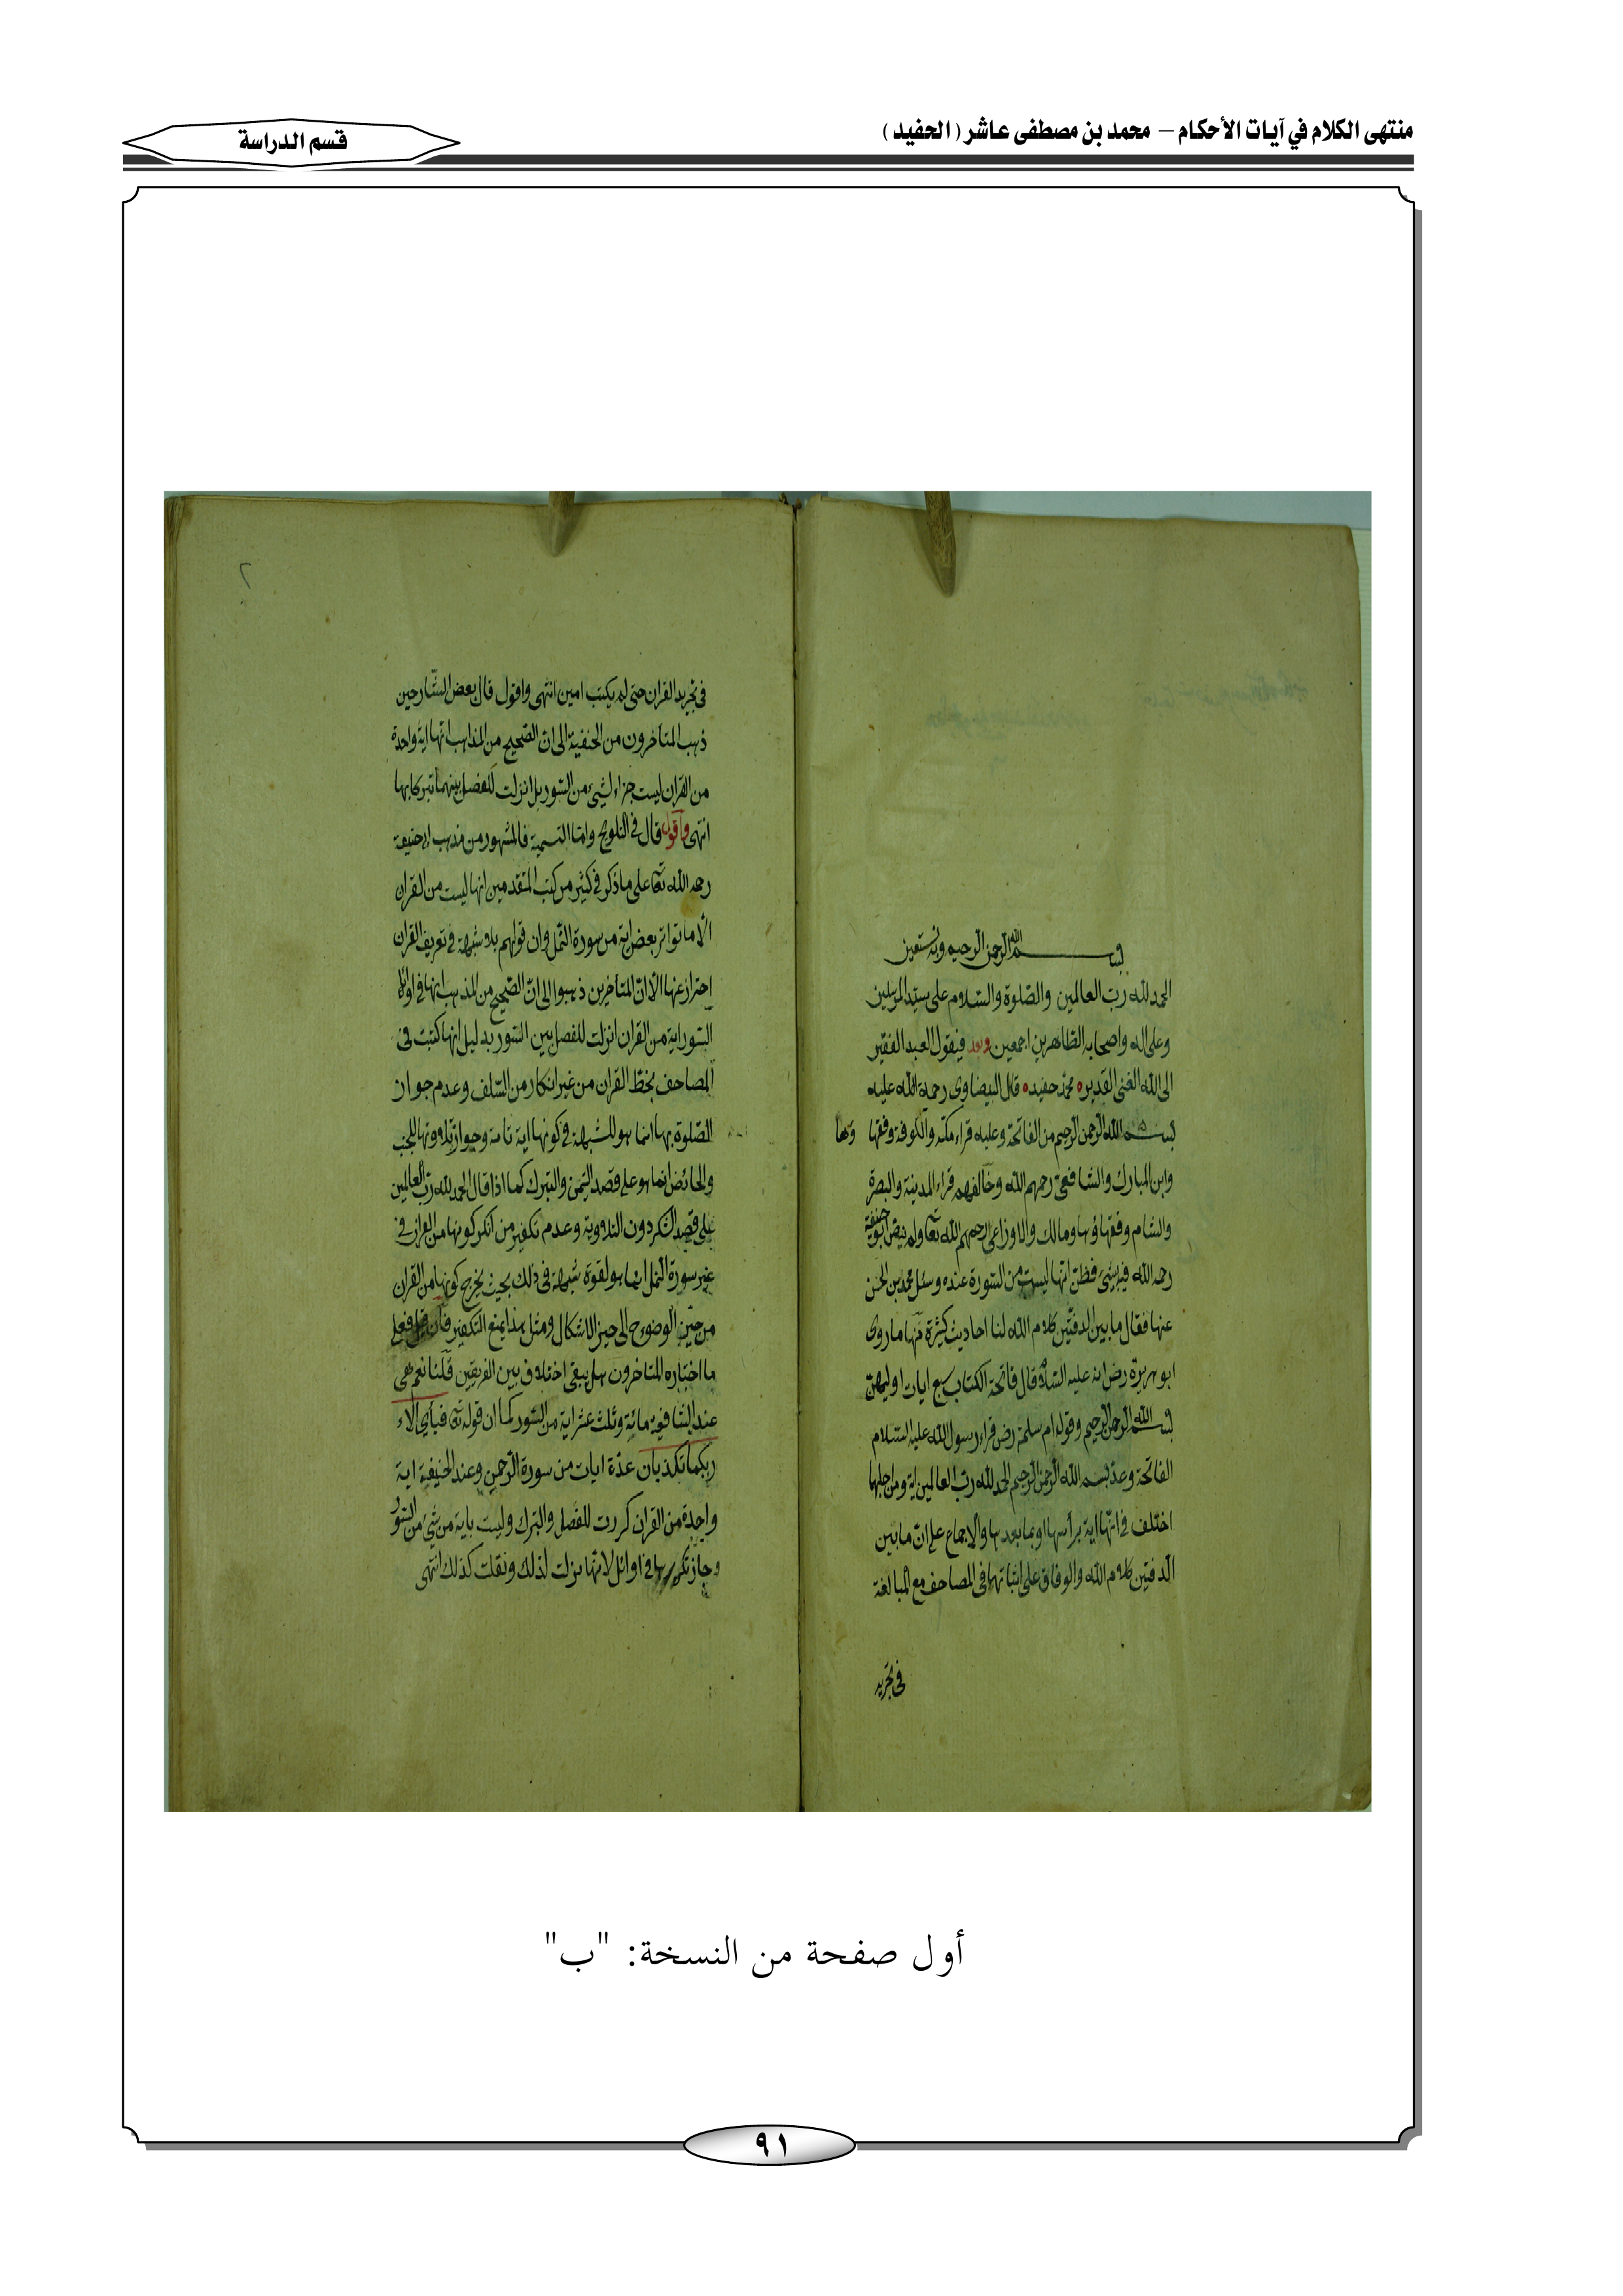 منتهى الكلام في آيات الأحكام – محمد بن مصطفى عاشر ( الحفيد )
قسم الدراسة
بسم الله الرحمن الرحيم وبه نستعين
الحمد لله رب العالمين والصلوة والسلام على سيد المرسلين
وعلى اله واصحابه الطاهرين اجمعين وبعد فيقول العبد الفقير
الى الله الغنى القدير محمد حفيد قال البيضاوى رحمة الله عليه
بسم الله الرحمن الرحيم من الفاتحة وعليه قراء مكة والكوفة وفقهاؤها
وابن المبارك والشافعى رحمهم الله وخالفهم قراء المدينة والبصرة
والشام وفقهاؤها ومالك والاوزاعى رحمهم الله تعا ولم ينص ابو حنيفة
رحمه الله فيه بشئ فظن انها ليست من السورة عنده وسئل محمد بن الحسن
عنها فقال ما بين الدفتين كلام الله لنا احاديث كثيرة منها ما روى
ابو هريرة رض انه عليه السلام قال فاتحة الكتاب سبع ايات اوليهن
بسم الله الرحمن الرحيم وقول ام سلمة رض قراء رسول الله عليه السلام
الفاتحة وعد بسم الله الرحمن الرحيم الحمد لله رب العالمين اية ومن اجلها
اختلف فى انها اية برأسها او بما بعدها والاجماع على ان ما بين
الدفتين كلام الله والوفاق على اثباتها فى المصاحف مع المبالغة
فى تجريد
٢
فى تجريد القران حتى لم يكتب امين انتهى واقول قال بعض الشارحين
ذهب المتأخرون من الحنفية الى ان الصحيح من المذاهب انها اية واحدة
من القران ليست جزاء لشئ من السور بل انزلت للفصل بينهما تبركا بها
انتهى واقول قال فى التلويح واما التسمية فالمشهور من مذهب ابى حنيفة
رحمه الله تعا على ما ذكر فى كثير من كتب المتقدمين انها ليست من القران
الا ما تواتر بعض اية من سورة النمل وان قولهم بلا شبهة فى تعريف القران
احتراز عنها الا ان المتأخرين ذهبوا الى ان الصحيح من المذهب انها فى اوائل
السور اية من القران انزلت للفصل بين السور بدليل انها كتبت فى
المصاحف بخط القران من غير انكار من السلف وعدم جواز
الصلوة بها انما هو للشبهة فى كونها اية تامة وجواز تلاوتها للجنب
والحائض انما هو على قصد التيمن والتبرك كما اذا قال الحمد لله رب العالمين
على قصد الشكر دون التلاوة وعدم تكفير من انكر كونها من القران فى
غير سورة النمل انما هو لقوة شبهة فى ذلك بحيث يخرج كونها من القران
من حيز الوضوح الى حيز الاشكال ومثل هذا يمنع التكفير فان قيل فعلى
ما اختاره المتاخرون هل يبقى اختلاف بين الفريقين قلنا نعم فهى
عند الشافعية مائة وثلث عشر اية من السور كما ان قوله تعا فبأى الاء
ربكما تكذبان عدة ايات من سورة الرحمن وعند الحنفية اية
واحدة من القران كررت للفصل والتبرك وليست باية من شئ من السور
وجاز تكريرها فى اوائل لانها نزلت لذلك ونقلت كذلك انتهى
أول صفحة من النسخة: "ب"
٩١